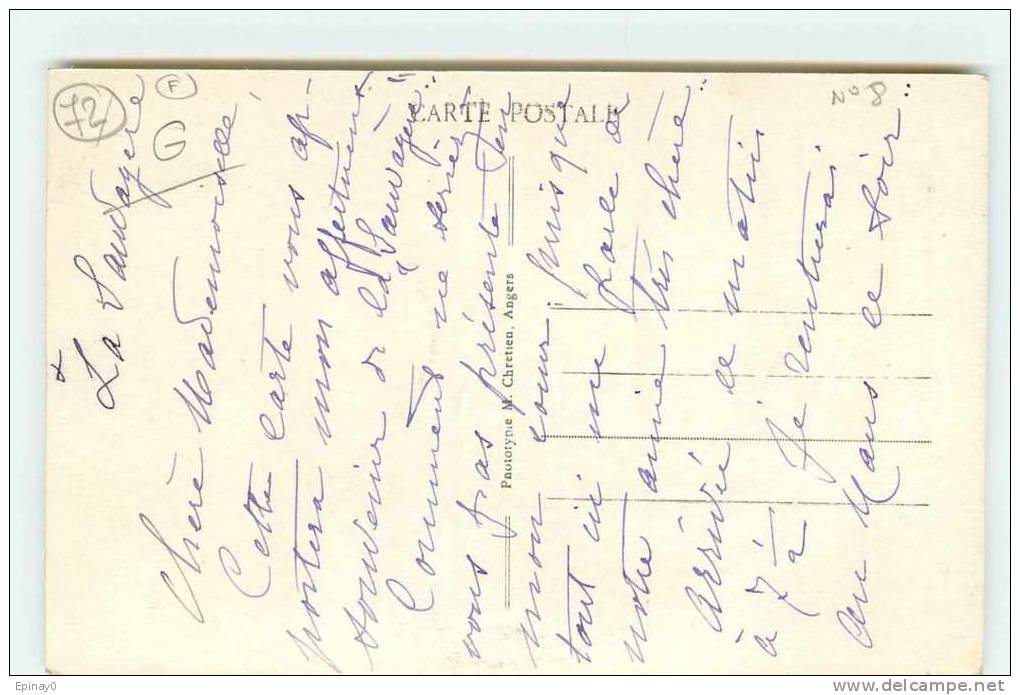 72
F
G
N° 8
CARTE POSTALE
Phototypie M. Chretien, Angers
La Sauvagère
Chère Mademoiselle
Cette carte vous ap-
portera mon affectueux
souvenir de la "Sauvagère".
Comment ne seriez
vous pas présente en
mon cœur puisque
tout ici me parle de
notre amie très chère
Arrivée ce matin
à 7 h Je rentrerai
au Mans ce soir
Epinay0
www.delcampe.net